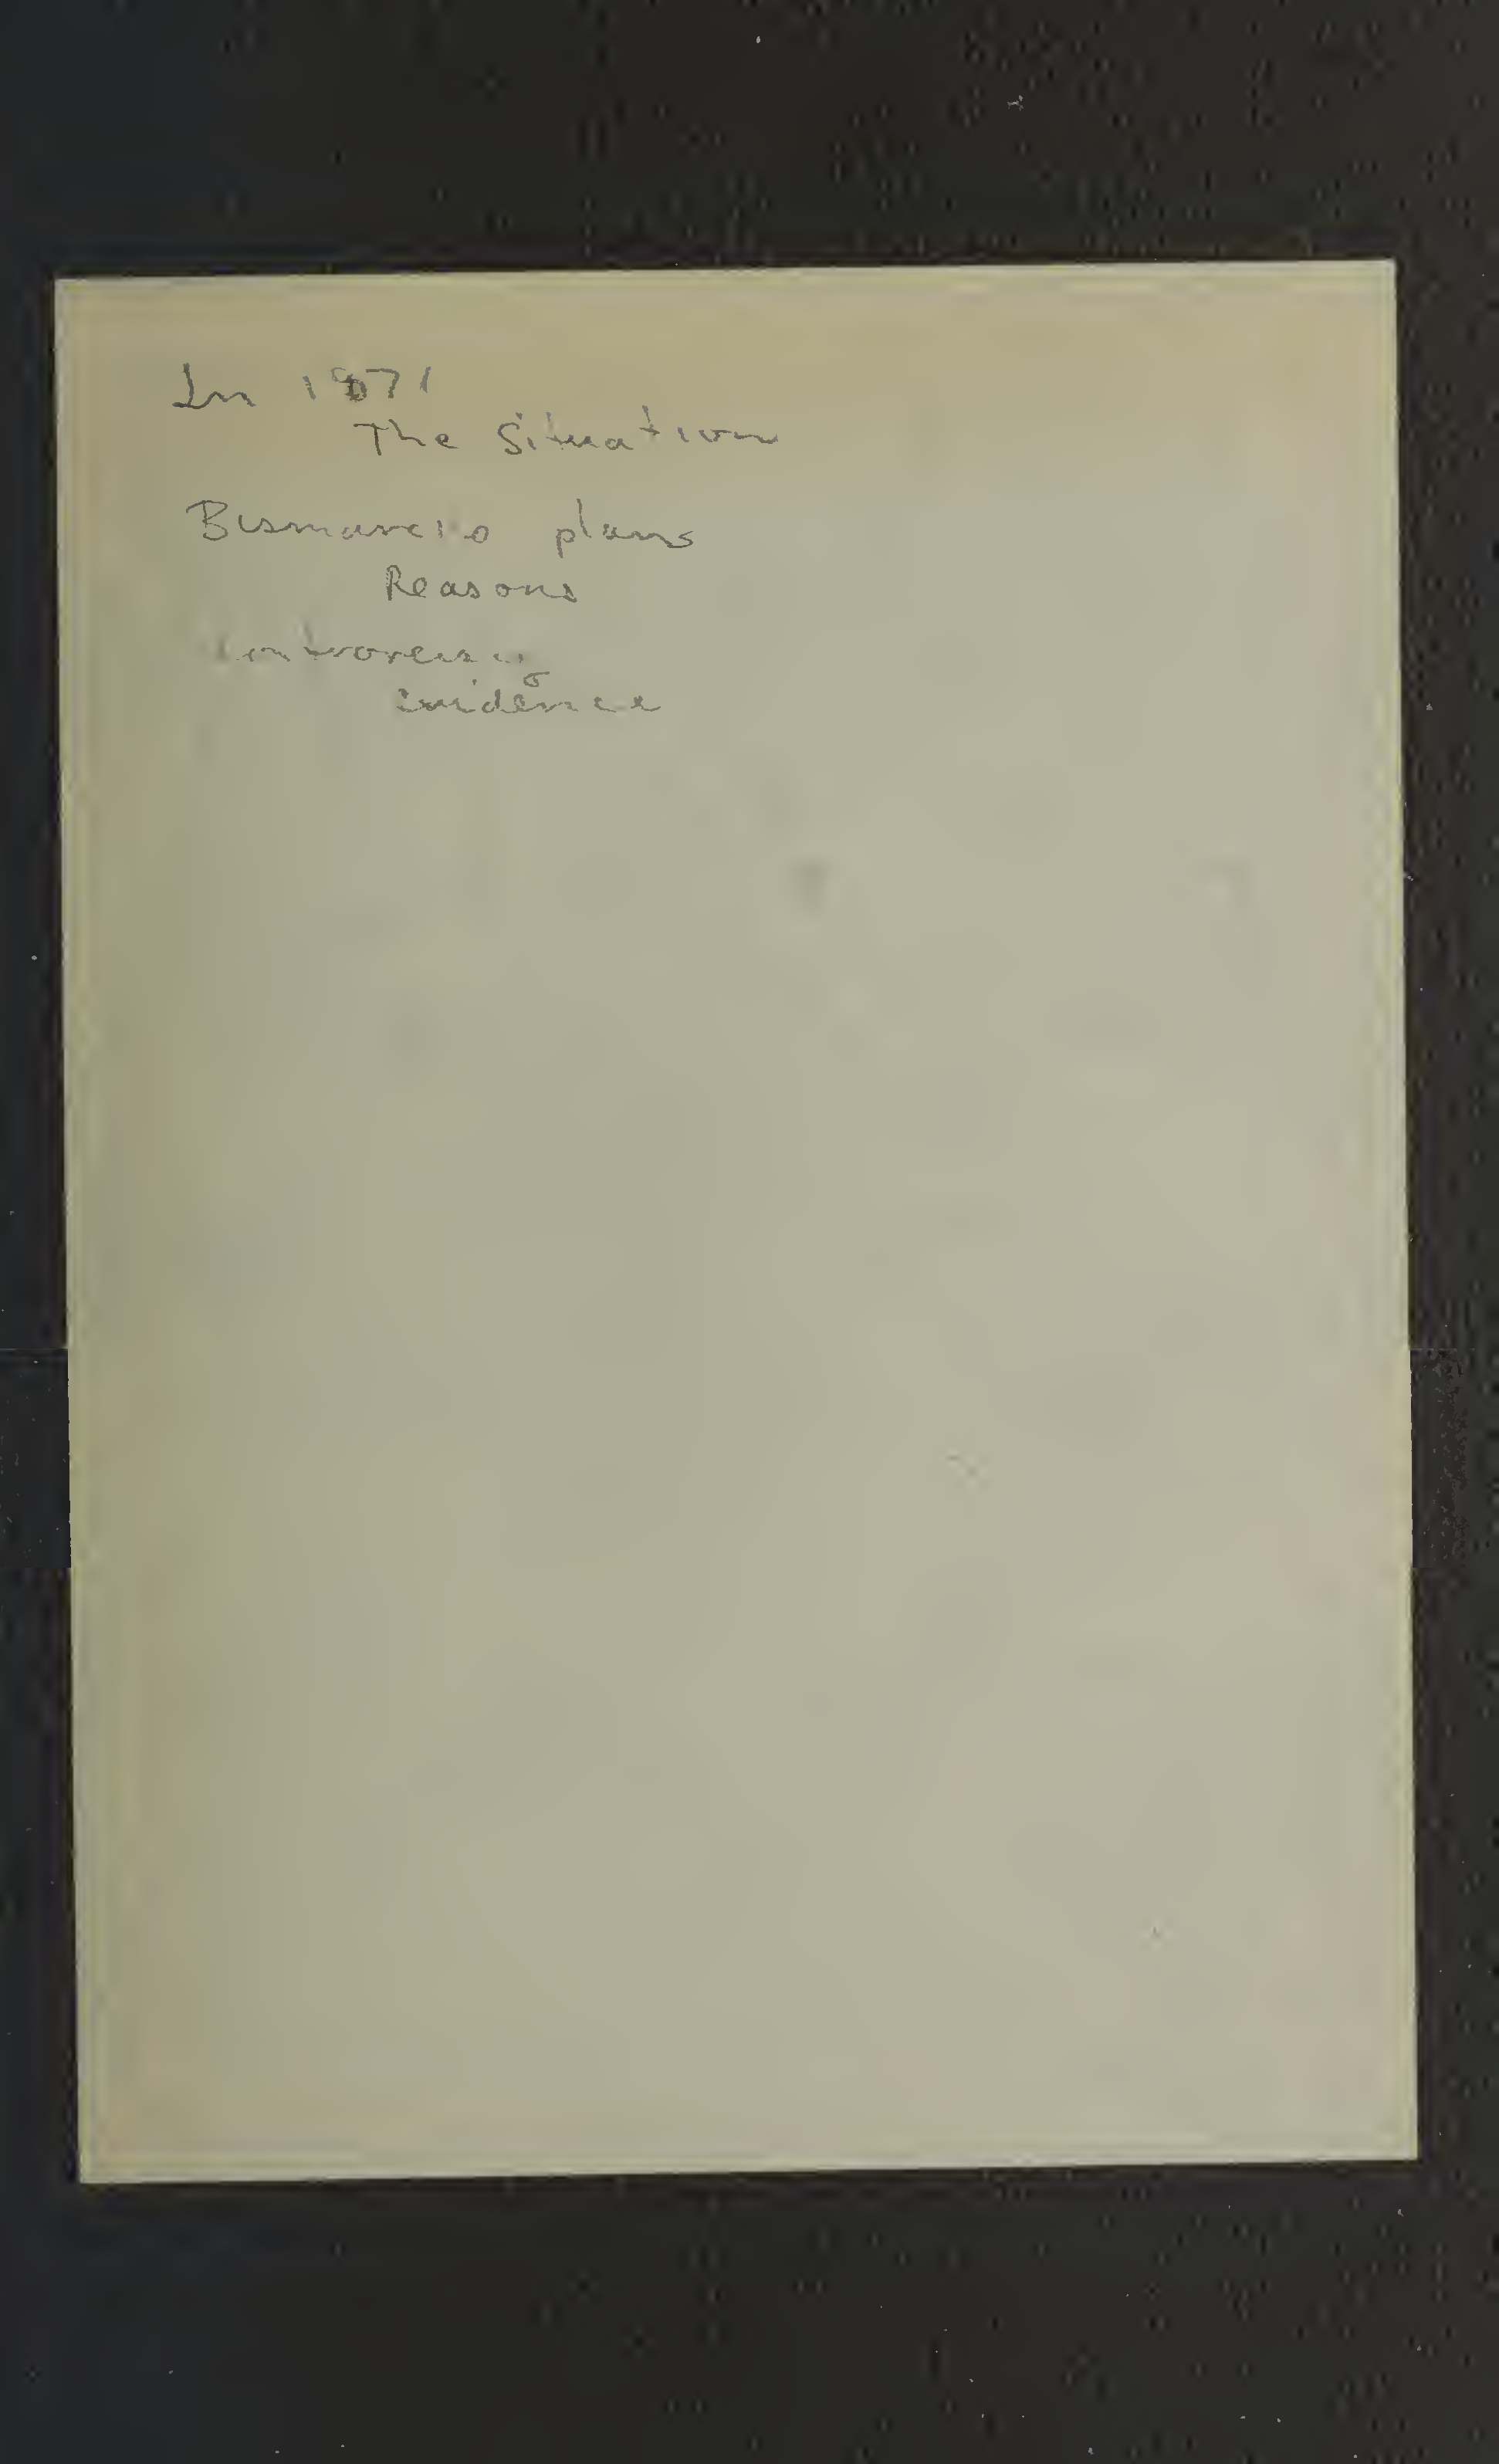 In 1871
The Situation
Bismarck's plans
Reasons
Controversy
Evidence